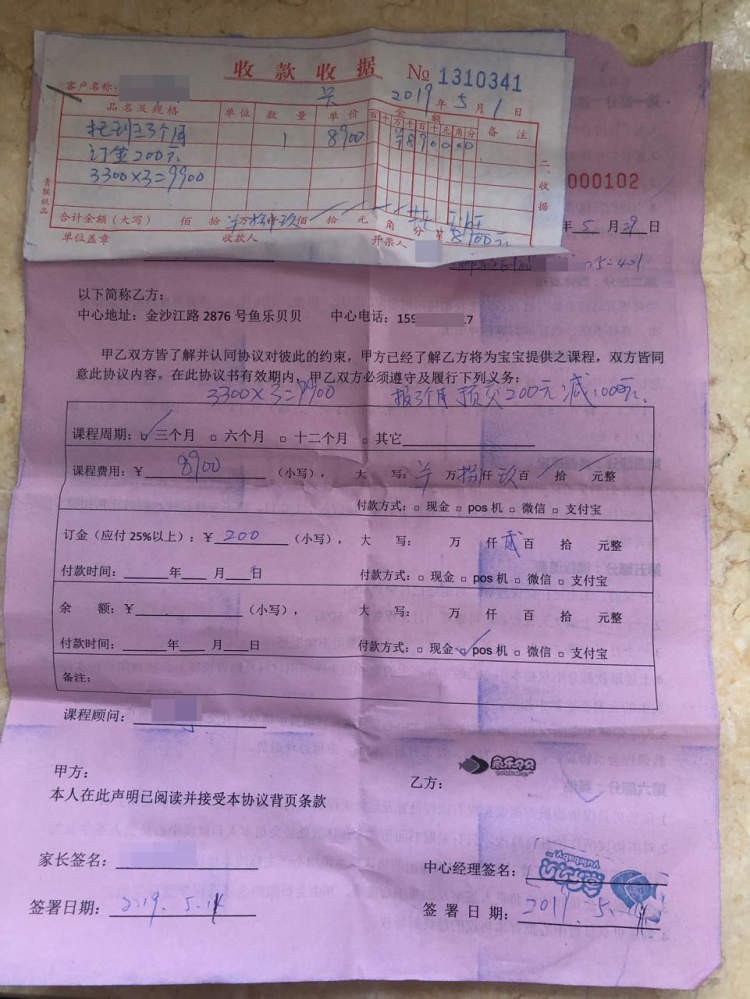 收款收据 № 1310341
客户名称: 2019年5月1日
品名及规格 单位 数量 单价 金额 备注
百十万千百十元角分
托班3个月 1 8900 ¥890000
订金200元
3300×3=9900
二、收据
合计金额（大写） 佰 拾 万 捌仟玖佰 拾 元 角 分 ¥8900元
单位盖章 收款人 开票人
000102
年5月29日
以下简称乙方:
中心地址: 金沙江路 2876 号鱼乐贝贝 中心电话: 159 17
甲乙双方皆了解并认同协议对彼此的约束，甲方已经了解乙方将为宝宝提供之课程，双方皆同
意此协议内容。在此协议书有效期内，甲乙双方必须遵守及履行下列义务:
3300×3=9900 报3个月 预交200元减1000元.
课程周期: ☑ 三个月 □ 六个月 □ 十二个月 □ 其它
课程费用: ¥ 8900 (小写), 大 写: 万 捌仟 玖百 拾 元整
付款方式: □ 现金 □ pos 机 □ 微信 □ 支付宝
订金（应付 25%以上）: ¥ 200 (小写), 大 写: 万 仟 贰百 拾 元整
付款时间: 年 月 日 付款方式: □ 现金 □ pos 机 □ 微信 □ 支付宝
余 额: ¥ (小写), 大 写: 万 仟 百 拾 元整
付款时间: 年 月 日 付款方式: □ 现金 ☑ pos 机 □ 微信 □ 支付宝
备注:
课程顾问:
甲方:
本人在此声明已阅读并接受本协议背页条款
鱼乐贝贝
乙方:
家长签名:
中心经理签名:
签署日期: 2019.5.14
签署日期: 2019.5.